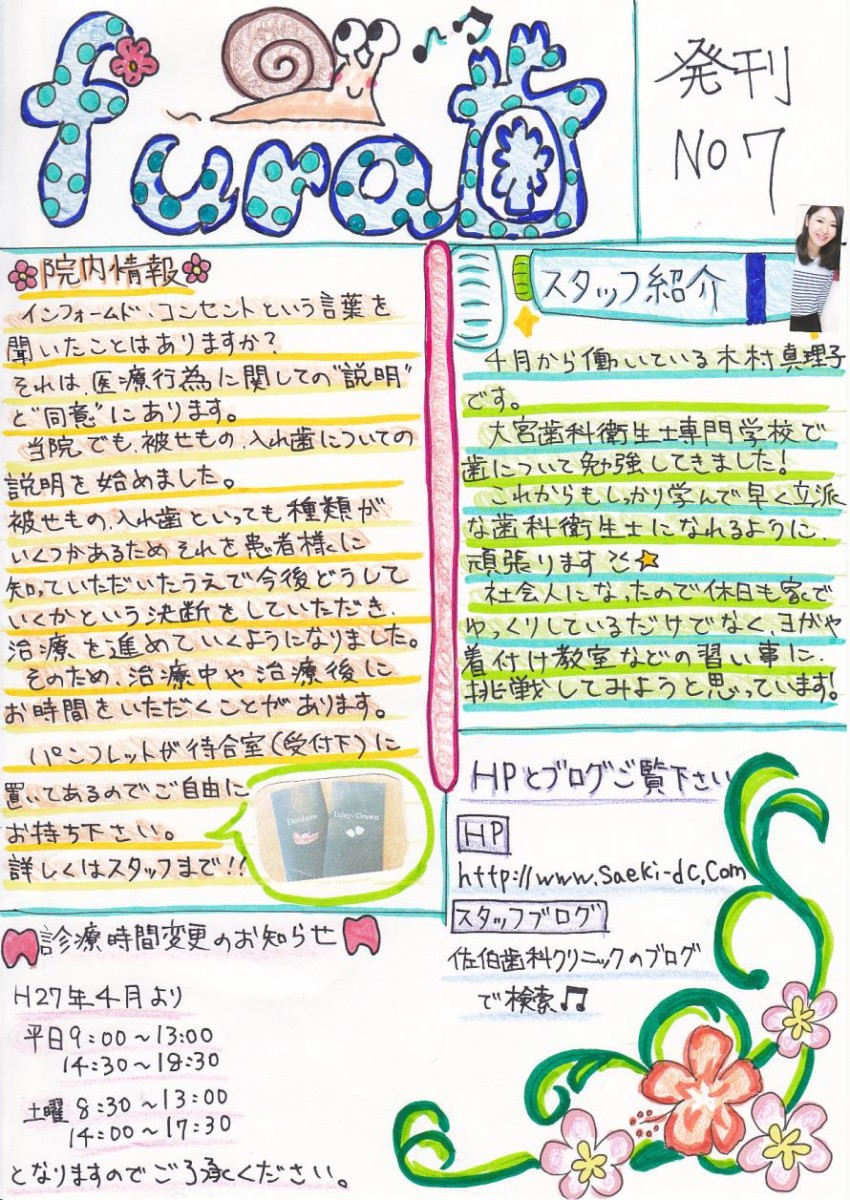 fura歯
発刊
No 7
院内情報
インフォームド・コンセントという言葉を
聞いたことはありますか?
それは、医療行為に関しての"説明"
と"同意"にあります。
当院でも、被せもの、入れ歯についての
説明を始めました。
被せもの、入れ歯といっても種類が
いくつかあるためそれを患者様に
知っていただいたうえで今後どうして
いくかという決断をしていただき、
治療を進めていくようになりました。
そのため、治療中や治療後に
お時間をいただくことがあります。
パンフレットが待合室(受付下)に
置いてあるのでご自由に
お持ち下さい。
詳しくはスタッフまで!!
Denture
Inlay・Crown
診療時間変更のお知らせ
H27年4月より
平日9:00~13:00
14:30~18:30
土曜 8:30~13:00
14:00~17:30
となりますのでご了承ください。
スタッフ紹介
4月から働いている木村真理子
です。
大宮歯科衛生士専門学校で
歯について勉強してきました!
これからもしっかり学んで早く立派
な歯科衛生士になれるように、
頑張ります
社会人になったので休日も家で
ゆっくりしているだけでなく、ヨガや
着付け教室などの習い事に、
挑戦してみようと思っています!
HPとブログご覧下さい
HP
http://www.saeki-dc.com
スタッフブログ
佐伯歯科クリニックのブログ
で検索♫